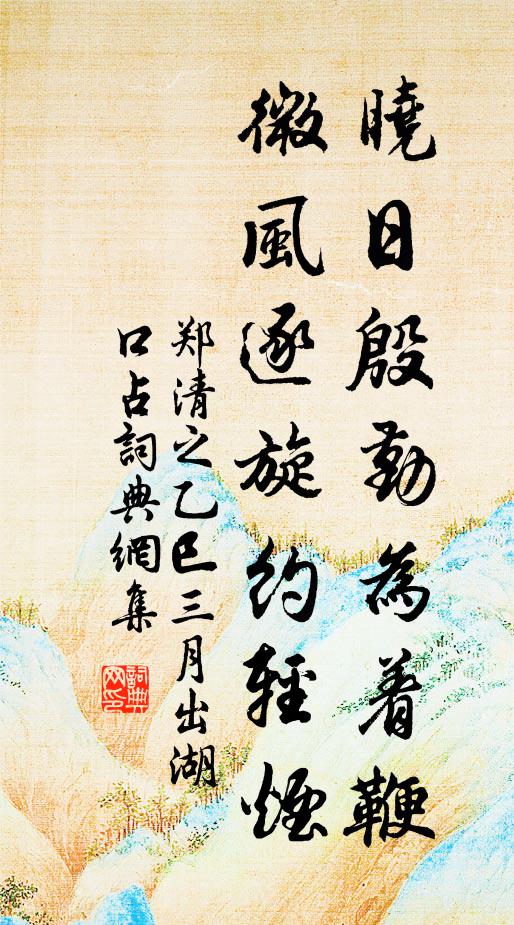 曉日殷勤為着鞭
微風逐旋約輕煙
郑清之乙巳三月出湖
口占詞典網集
詞典網印